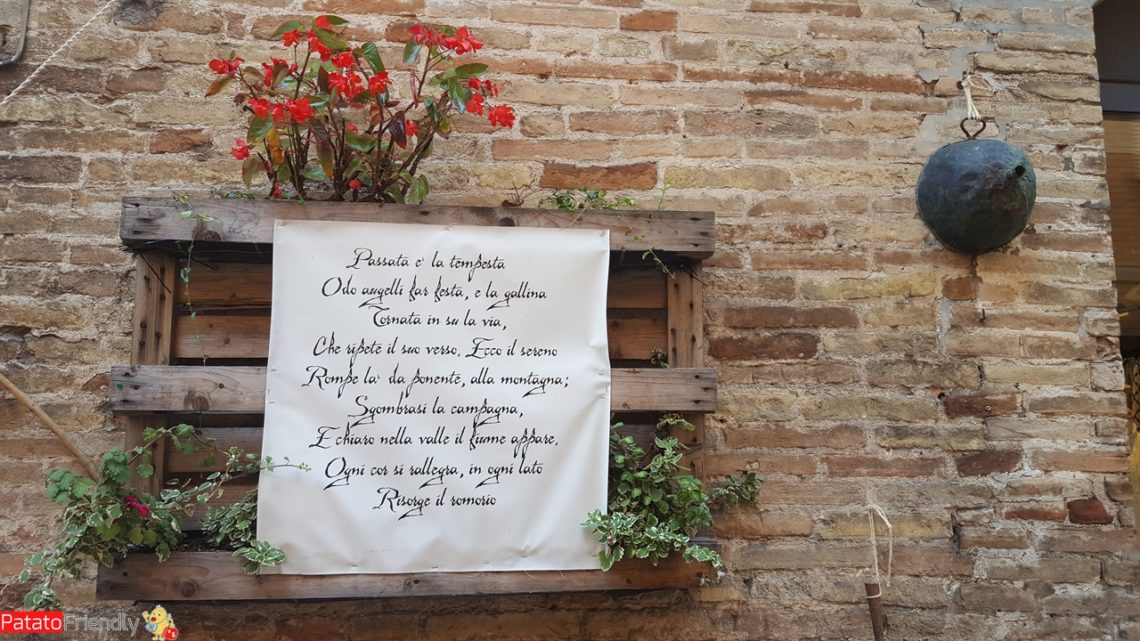 Passata e' la tempesta
Odo augelli far festa, e la gallina
Tornata in su la via,
Che ripete il suo verso. Ecco il sereno
Rompe la' da ponente, alla montagna;
Sgombrasi la campagna,
E chiaro nella valle il fiume appare.
Ogni cor si rallegra, in ogni lato
Risorge il romorio
PatatoFriendly